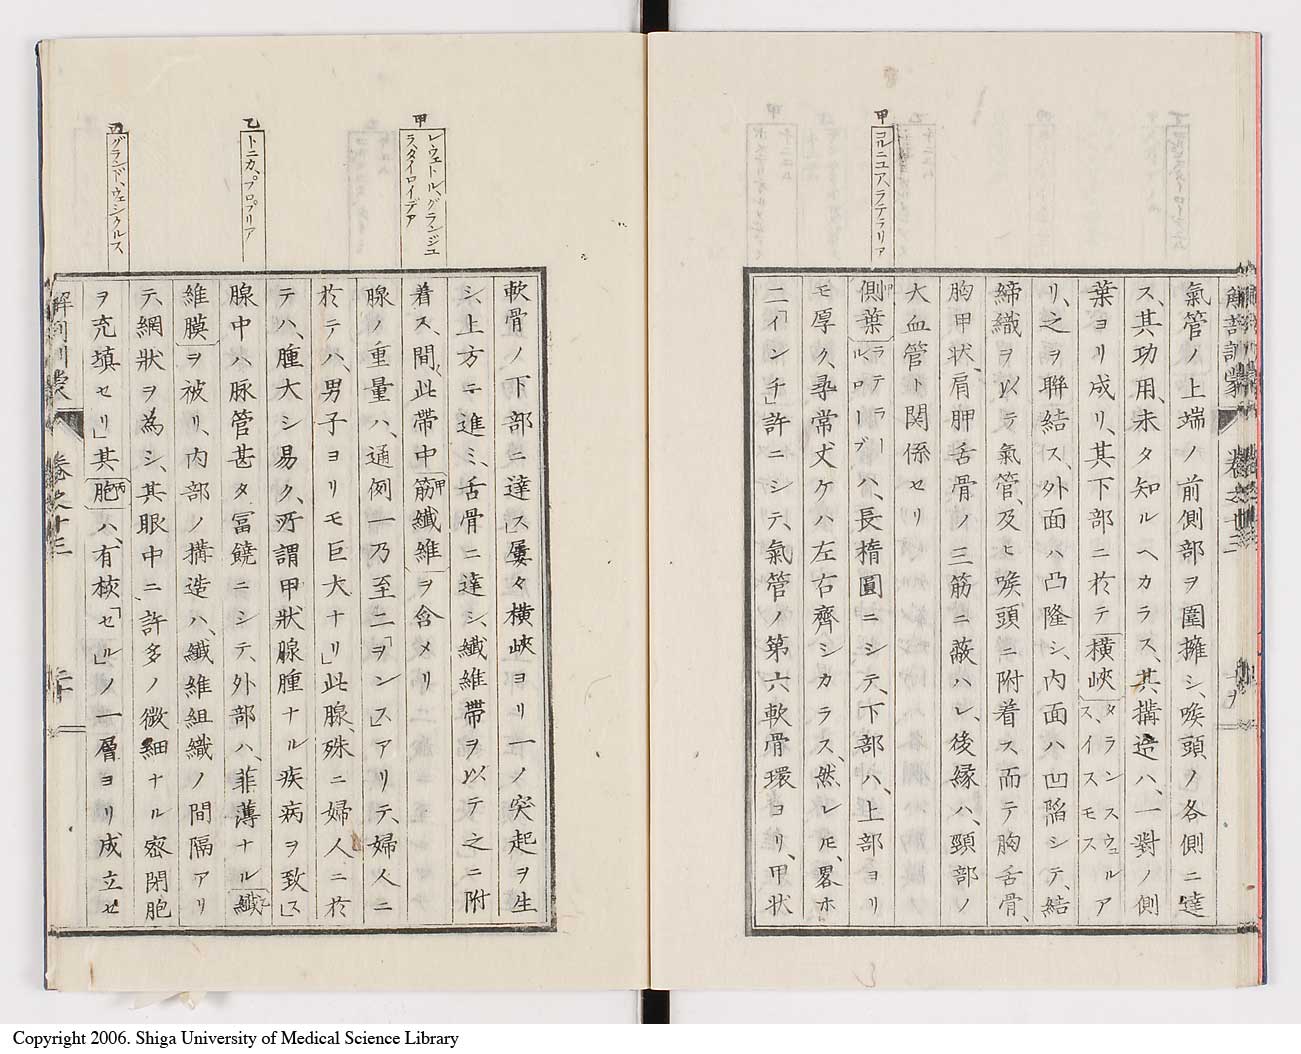 甲
コルニユア、ラテラリア
解剖訓蒙
卷之十三
氣管ノ上端ノ前側部ヲ圍擁シ、喉頭ノ各側ニ達
ス、其功用、未タ知ルヘカラス、其搆造ハ、一對ノ側
葉ヨリ成リ、其下部ニ於テ横峽タランスウェルア
ス、イスモス
リ、之ヲ聯結ス、外面ハ凸隆シ、内面ハ凹陷シテ、結
締織ヲ以テ氣管、及ヒ喉頭ニ附着ス而テ胸舌骨、
胸甲状、肩胛舌骨ノ三筋ニ蔽ハレ、後縁ハ、頸部ノ
大血管ト関係セリ
側葉甲ラテラー
ルローブハ、長楕圓ニシテ、下部ハ、上部ヨリ
モ厚ク、尋常丈ケハ左右齊シカラス、然レ𪜈、畧ホ
二「インチ」許ニシテ、氣管ノ第六軟骨環ヨリ、甲状
甲
レ、ウェトル、グランジュ
ラ、タイロイデア
乙
トニカ、プロプリア
丙
グランド、ウェシクルス
軟骨ノ下部ニ達ス」屢々横峽ヨリ一ノ突起ヲ生
シ、上方ニ進ミ、舌骨ニ達シ、纎維帶ヲ以テ之ニ附
着ス、間〻此帶中筋纎維甲ヲ含メリ
腺ノ重量ハ、通例一乃至二「ヲンス」アリテ、婦人ニ
於テハ、男子ヨリモ巨大ナリ」此腺、殊ニ婦人ニ於
テハ、腫大シ易ク、所謂甲状腺腫ナル疾病ヲ致ス」
腺中ハ脉管甚タ冨饒ニシテ、外部ハ、菲薄ナル纎乙
維膜ヲ被リ、内部ノ搆造ハ、纎維組織ノ間隔アリ
テ、網狀ヲ為シ、其眼中ニ許多ノ微細ナル密閉胞
ヲ充填セリ」其胞丙ハ、有核「セル」ノ一層ヨリ成立セ
解剖訓蒙
卷之十三
二十